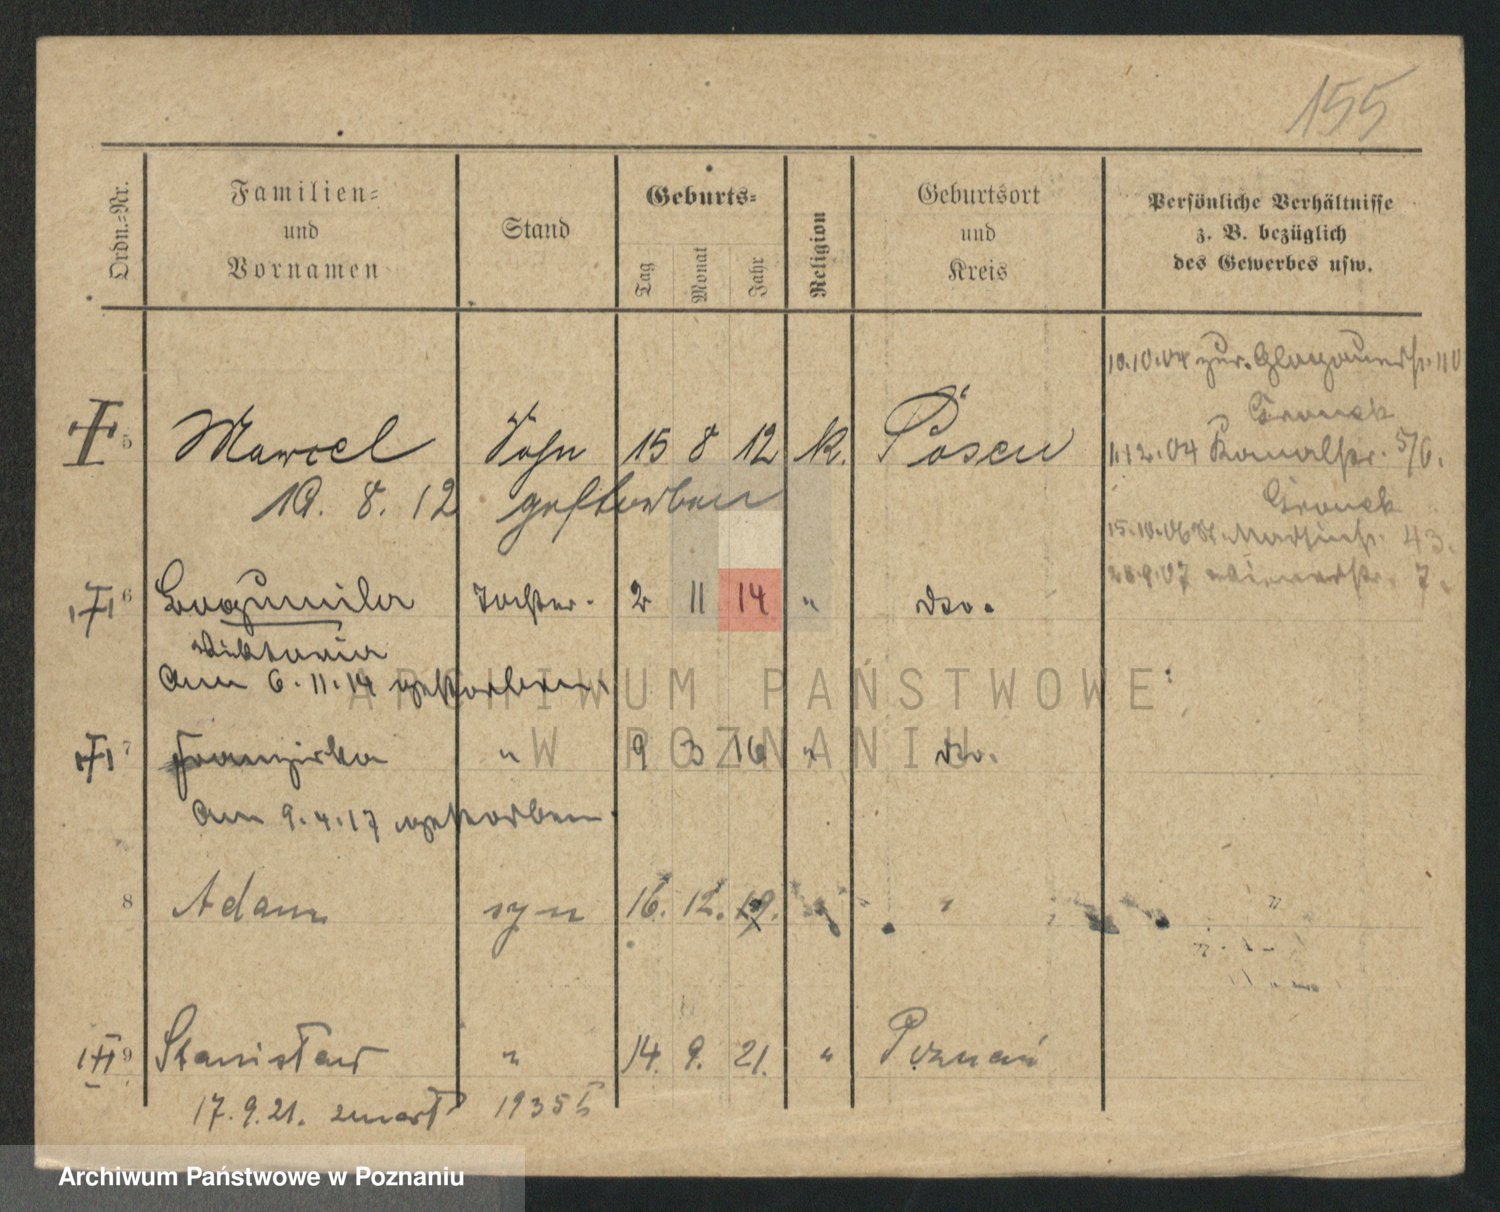 155
Ordn.-Nr.
Familien-
und
Vornamen
Stand
Geburts-
Tag
Monat
Jahr
Religion
Geburtsort
und
Kreis
Persönliche Verhältnisse
z. B. bezüglich
des Gewerbes usw.
10.10.04 zur. Glogauerstr. 110
5 Marcel Sohn 15 8 12 K. Posen
1.12.04 Kanalstr. 5/6.
19. 8. 12 gestorben
15.10.06 St. Martinstr. 43.
28.9.07 7.
6 Bogumila Tochter. 2 11 14 " dto.
Viktoria
am 6.11.14 gestorben.
7 Franziska " 9 3 16 " dto.
am 9.4.17 gestorben.
8 Adam syn 16. 12. 19. "
9 Stanisław " 14. 9. 21. " Poznań
17.9.21. zmarł
ARCHIWUM PAŃSTWOWE
W POZNANIU
Archiwum Państwowe w Poznaniu